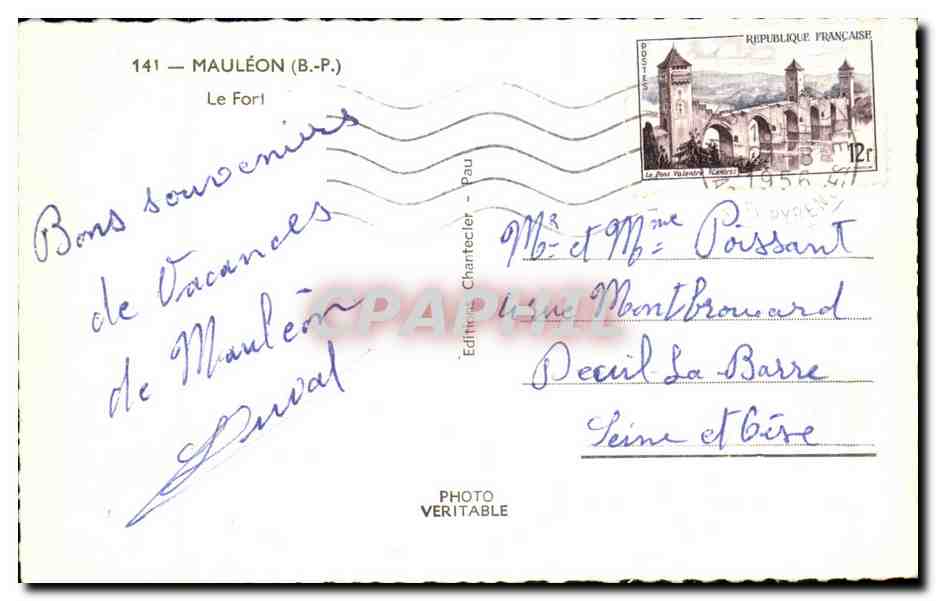 141 — MAULÉON (B.-P.)
Le Fort
Bons souvenirs
de Vacances
de Mauléon
Duval
Editions Chantecler - Pau
REPUBLIQUE FRANÇAISE
POSTES
12F
Le Pont Valentré (Cahors)
1956
Mr et Mme Poissant
Montbrouard
Deuil-La-Barre
Seine et Oise
PHOTO
VERITABLE
CPAPHIL